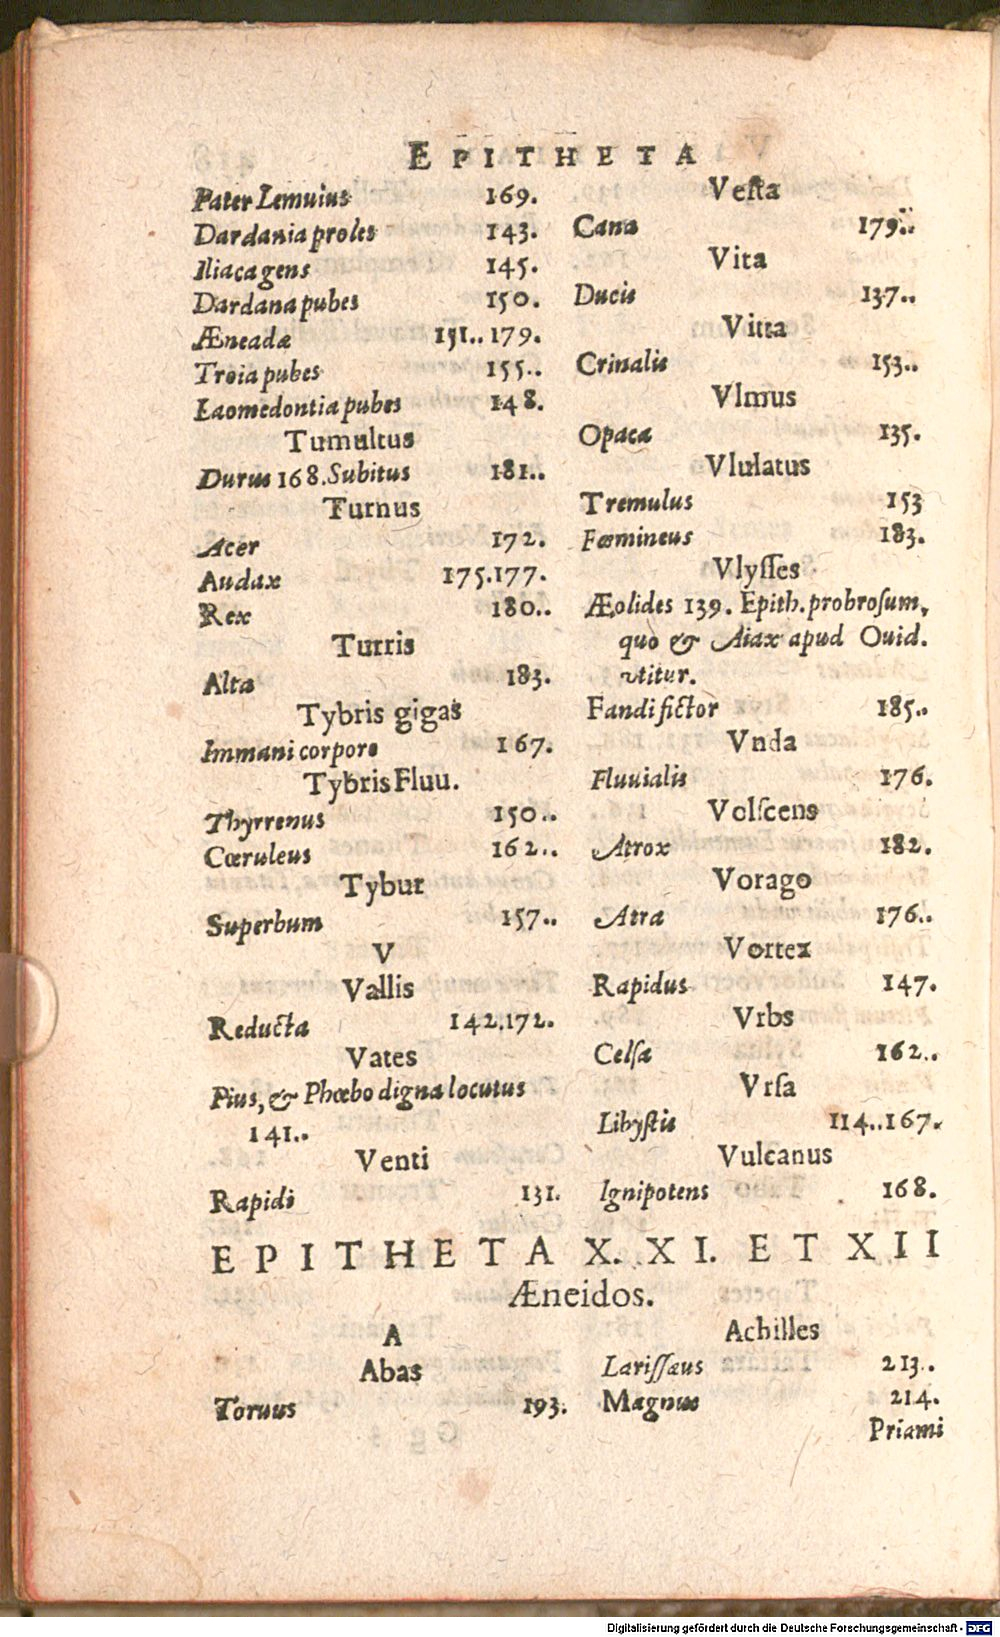 EPITHETA
Pater Lemuius 169.
Dardania proles 143.
Iliaca gens 145.
Dardana pubes 150.
Æneadæ 151..179.
Troia pubes 155..
Laomedontia pubes 148.
Tumultus
Durus 168. Subitus 181..
Turnus
Acer 172.
Audax 175.177.
Rex 180..
Turris
Alta 183.
Tybris gigas
Immani corpore 167.
Tybris Fluu.
Thyrrenus 150..
Cœruleus 162..
Tybur
Superbum 157..
V
Vallis
Reducta 142.172.
Vates
Pius, & Phœbo digna locutus
141..
Venti
Rapidi 131.
Vesta
Cana 179..
Vita
Ducis 137..
Vitta
Crinalis 153..
Vlmus
Opaca 135.
Vlulatus
Tremulus 153
Fœmineus 183.
Vlysses
Æolides 139. Epith. probrosum,
quo & Aiax apud Ouid.
vtitur.
Fandi fictor 185..
Vnda
Fluuialis 176.
Volscens
Atrox 182.
Vorago
Atra 176..
Vortex
Rapidus 147.
Vrbs
Celsa 162..
Vrsa
Libystis 114..167.
Vulcanus
Ignipotens 168.
EPITHETA X. XI. ET XII
Æneidos.
A
Abas
Toruus 193.
Achilles
Larissæus 213..
Magnus 214.
Priami
Digitalisierung gefördert durch die Deutsche Forschungsgemeinschaft - DFG